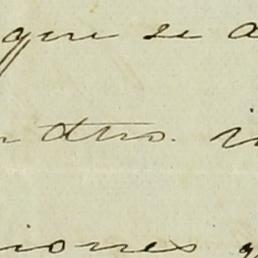 que se a
dtro. i
iones q